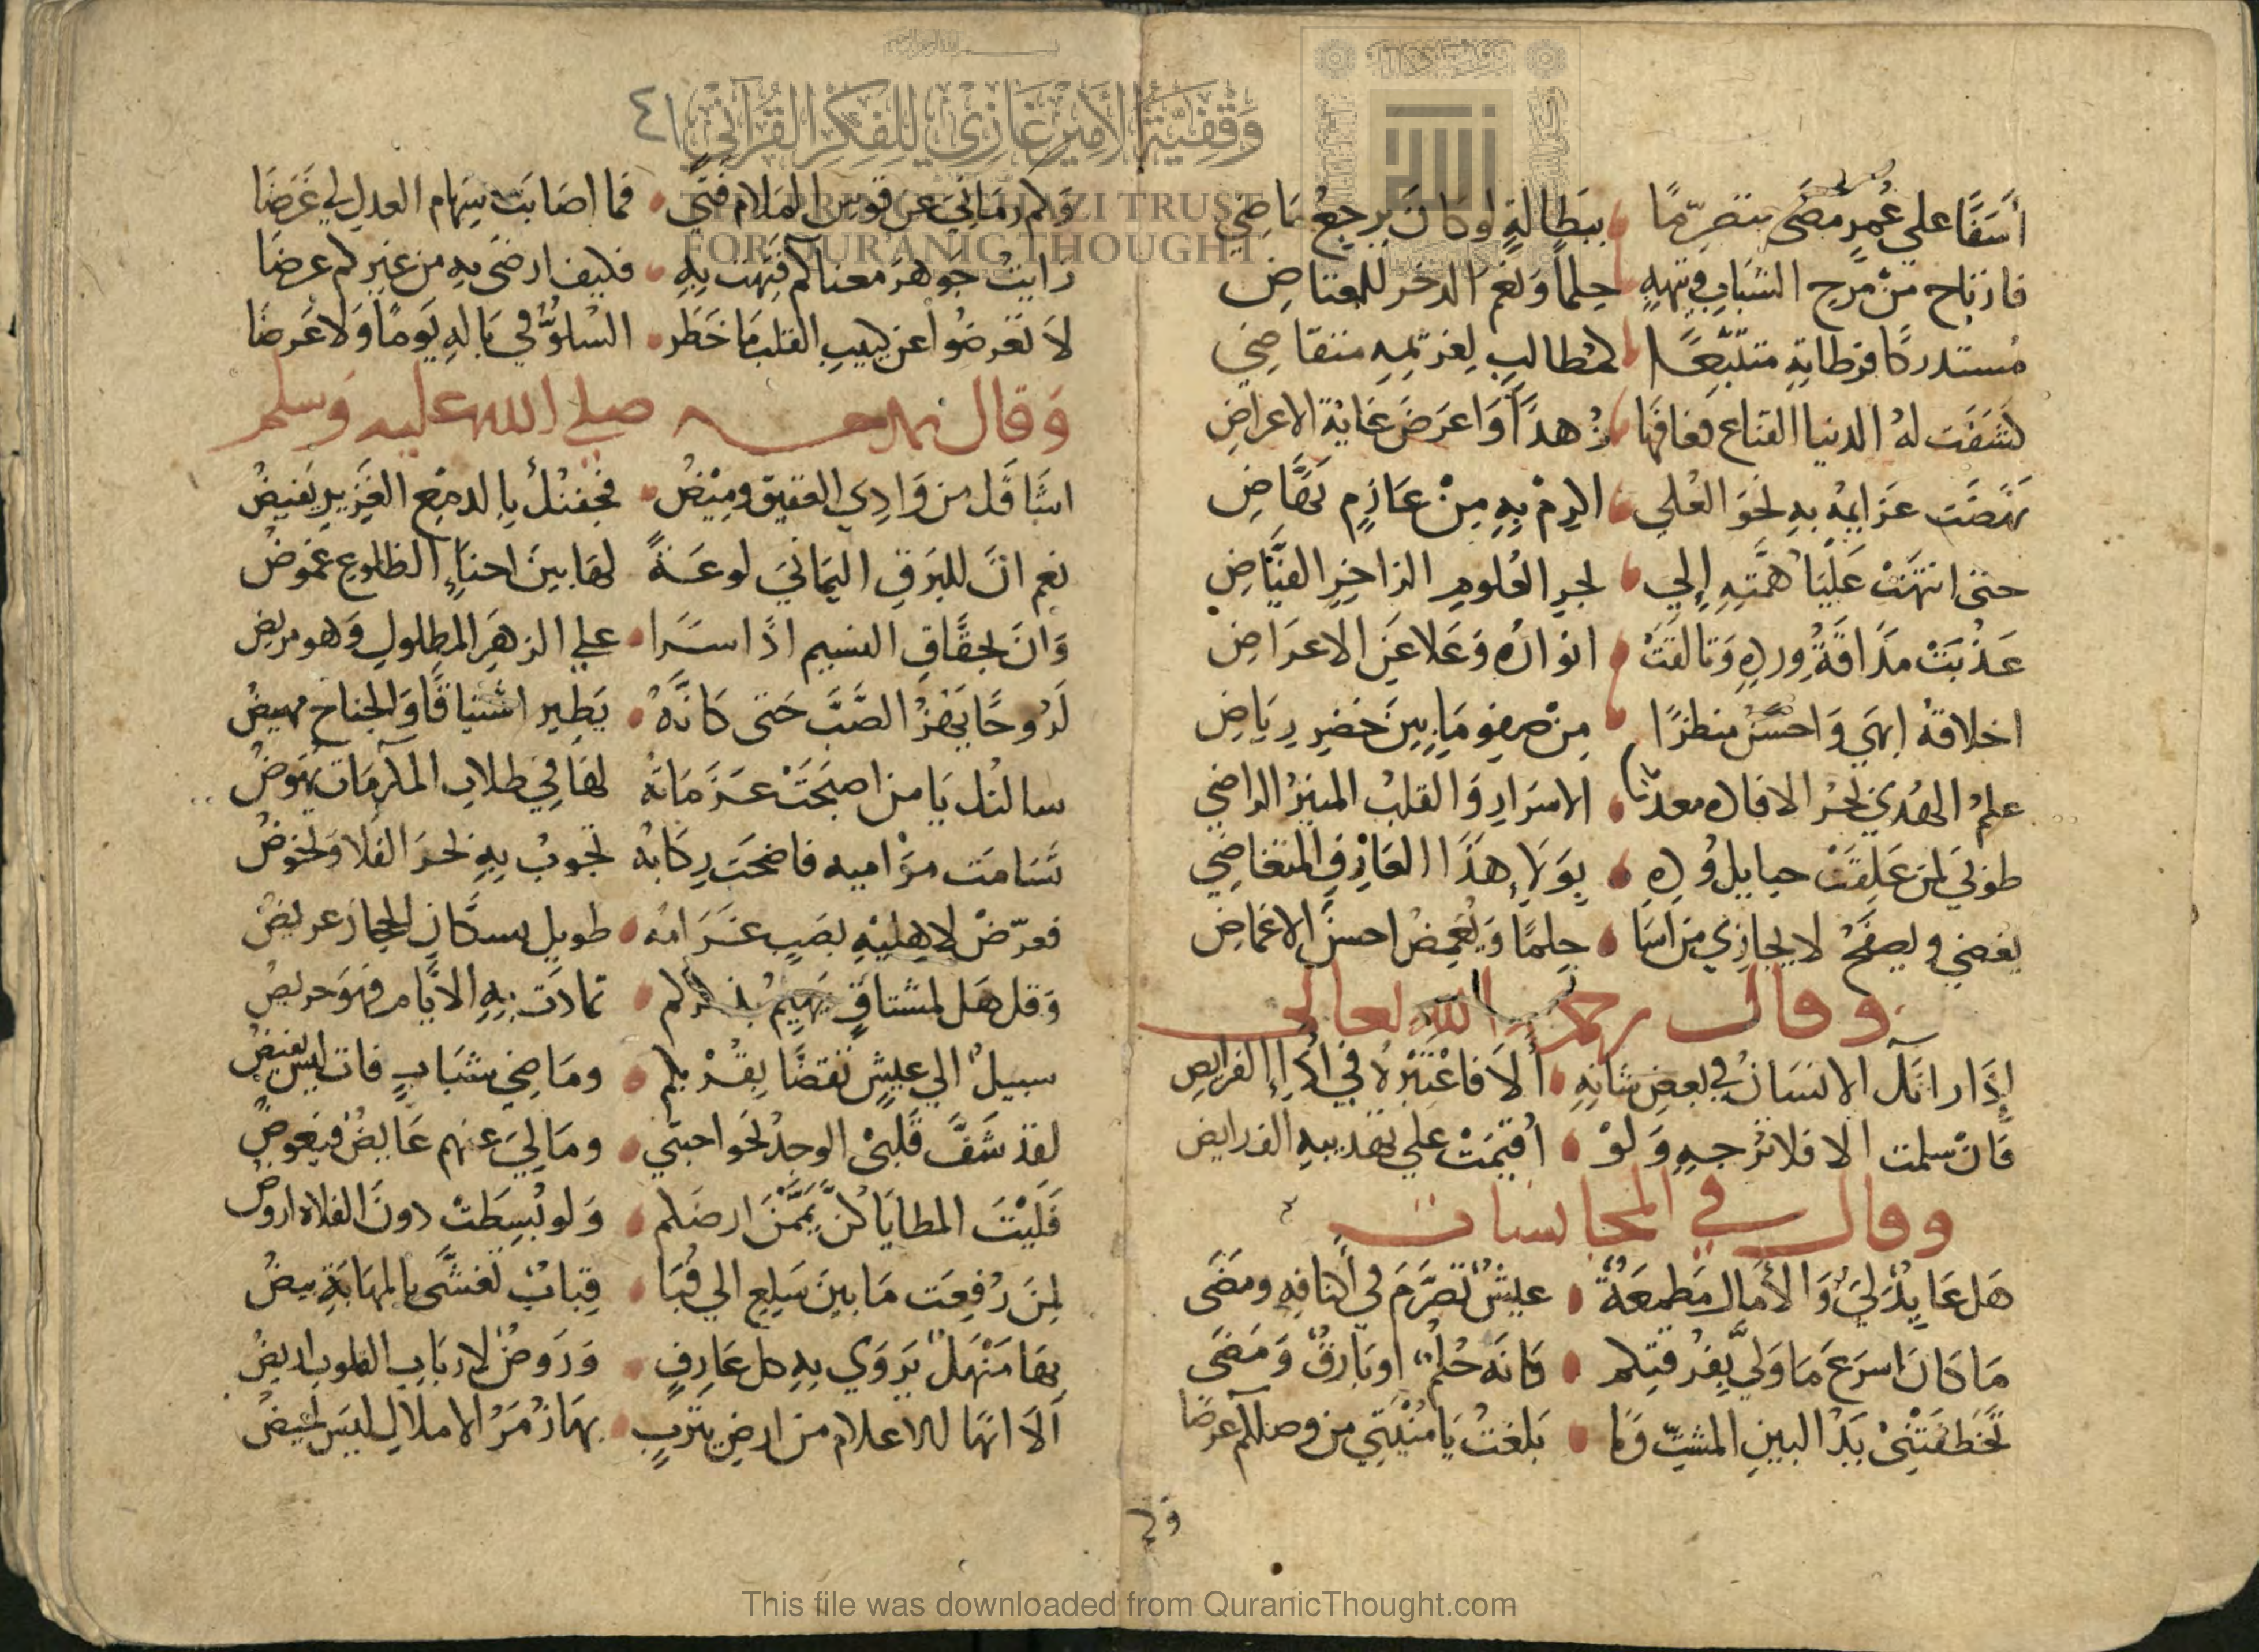 أسفًا على عُمرٍ مضى متصرّمًا ببَطالةٍ لو كان يرجعُ ماضي
فارتاح من مرح الشباب وتيهه حلماً ونعم الدخر للمعتاض
مستدركًا فرطاته متتبعًا كمطالبٍ لغريمه متقاضي
كشفت له الدنيا القناع فعافها زُهداً وأعرض غاية الاعراض
نهضت عزايمه به نحو العُلى اكرم به من عازم نهّاض
حتى انتهت عليا همّته إلى بحر العلوم الزاخر الفيّاض
عذُبت مذاقة ورده وتالقت انواره وعلا عن الاعراض
اخلاقه ابهى واحسن منظرًا من صفو ما بين خضر رياض
علم الهُدى بحر الافاده معدن الاسرار والقلب المنير الراضي
طوبى لمن علقت حبايل وده بولاء هذا العارف المتغاضي
يغضي ويصفح لا يجازي من اسا حلمًا ويُغمض احسن الاغماض
وقال رحمه الله تعالى
إذا رابك الانسان في بعض شانه ألا فاعتبره في اداء الفرايض
فان سلمت الا فلا ترجه ولو أقيمت على تهذيبه الفرايض
وقال في المجانسات
هل عايدٌ لي والأمال مطمعةٌ عيشٌ تصرّم في أكنافه ومضى
ما كان اسرع ما ولّى بفرقتكم كانه حُلمٌ او بارقٌ ومضى
تخطفتني يد البين المشتّ وما بلغت يا منيتي من وصلكم غرضا
وكم
٤١
وكم رماني عن قوس الملام فتًى فما اصابت سهام العدل لي غرضا
رايت جوهر معناكم فتهت به فكيف ارضى به من غيركم عرضا
لا تعرضوا عن كئيب القلب ما خطر السلوّ في باله يومًا ولا عرضا
وقال يمدحه صلى الله عليه وسلم
اشاقك من وادي العقيق وميض فجفنك بالدمع الغزير يفيض
نعم انّ للبرق اليماني لوعةً لها بين احناء الظلوع غموض
وان لخفّاق النسيم اذا سرا على الزهر المطلول وهو مريض
لروحًا يهزّ الصّبّ حتى كانّه يطير اشتياقًا والجناح مهيض
سالتك يا من اصبحت عزماته لها في طلاب المكرمات نهوض
تسامت مراميه فاضحت ركابه تجوب به نحر الفلا وتخوض
فعرّض لاهليه بصبٍ غرامه طويل بسكّان الحجاز عريض
وقل هل لمشتاقٍ يهيم بذكركم تمادت به الايام فهو حريض
سبيلٌ الى عيشٍ تقضّا بقربكم وماضي شبابٍ فات ليس يفيض
لقد شفّ قلبي الوجد نحو احبتي وما لي عنهم عايض فيعوض
فليت المطايا كنّ يمّمن ارضكم ولو بُسطت دون الفلاه اروض
لمن رُفعت ما بين سلع الى قُبا قبابٌ تغشّى بالمهابة بيض
بها منهلٌ يروي به كل عارفٍ وروضٌ لارباب القلوب اريض
ألا انها للاعلام من ارض يثربٍ بها زُمر الاملاك ليس تحيض
وقفية الأمير غازي للفكر القرآني
THE PRINCE GHAZI TRUST
FOR QUR'ANIC THOUGHT
This file was downloaded from QuranicThought.com